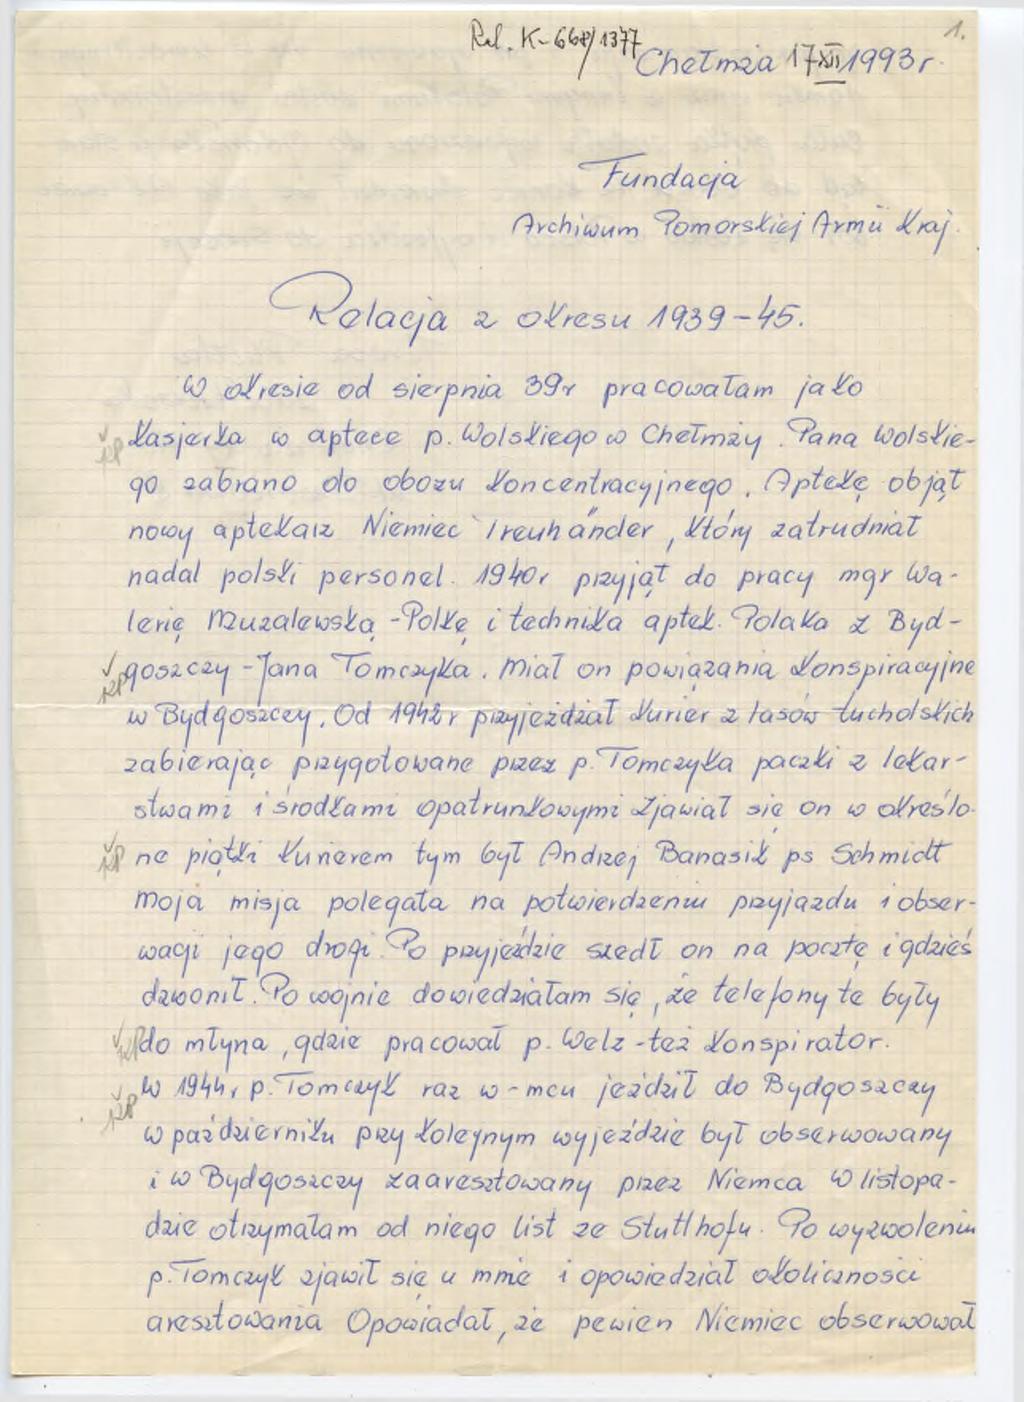 Rel. K-668/1377
1.
Chełmża 17 XII 1993 r.
Fundacja
Archiwum Pomorskiej Armii Kraj.
Relacja z okresu 1939-45.
W okresie od sierpnia 39r pracowałam jako
kasjerka w aptece p. Wolskiego w Chełmży. Pana Wolskie-
go zabrano do obozu koncentracyjnego. Aptekę objął
nowy aptekarz Niemiec Treuhänder, który zatrudniał
nadal polski personel. 1940r przyjął do pracy mgr Wa-
lerię Muzalewską - Polkę i technika aptek. Polaka z Byd-
goszczy - Jana Tomczyka. Miał on powiązania konspiracyjne
w Bydgoszczy. Od 1942r przyjeżdżał kurier z lasów tucholskich
zabierając przygotowane przez p. Tomczyka paczki z lekar-
stwami i środkami opatrunkowymi Zjawiał się on w określo-
ne piątki Kurierem tym był Andrzej Banasik ps Schmidt
Moja misja polegała na potwierdzeniu przyjazdu i obser-
wacji jego drogi. Po przyjeździe szedł on na pocztę i gdzieś
dzwonił. Po wojnie dowiedziałam się, że telefony te były
do młyna, gdzie pracował p. Welz - też konspirator.
W 1944r p. Tomczyk raz w - mcu jeździł do Bydgoszczy
w październiku przy kolejnym wyjeździe był obserwowany
i w Bydgoszczy zaaresztowany przez Niemca W listopa-
dzie otrzymałam od niego list ze Stutthofu. Po wyzwoleniu
p. Tomczyk zjawił się u mnie i opowiedział okoliczności
aresztowania Opowiadał, że pewien Niemiec obserwował